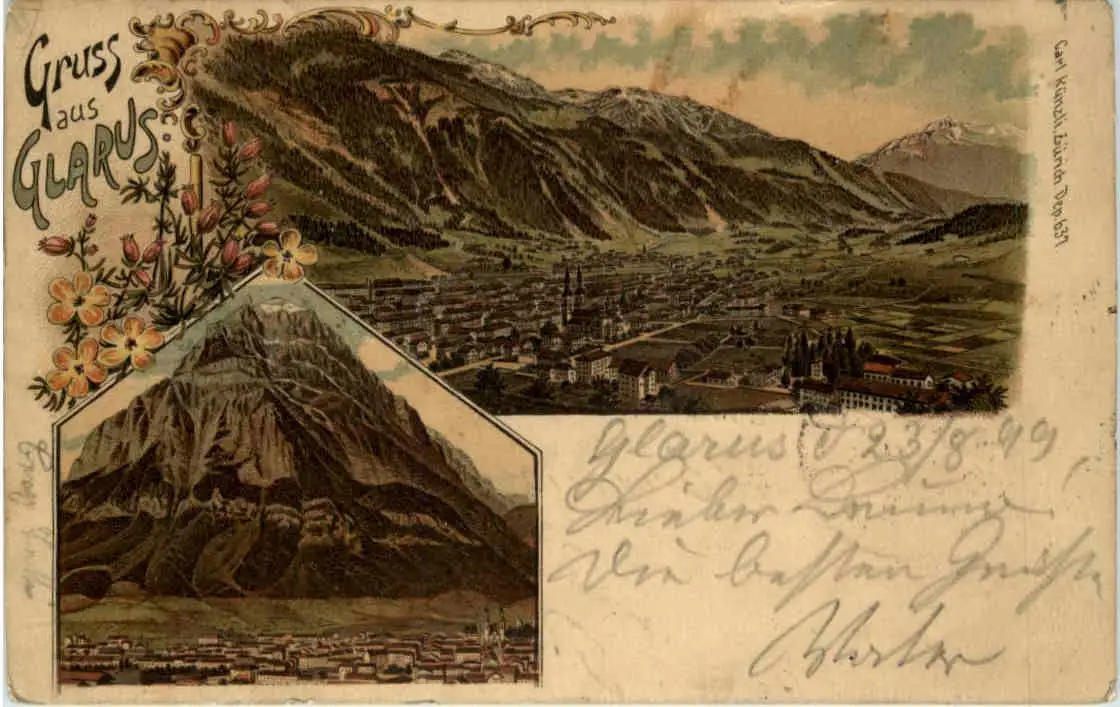 Gruss
aus
GLARUS.
Carl Künzli, Zürich Dep. 637
Glarus d 23/8.99,
Lieber
Die besten Grüsse